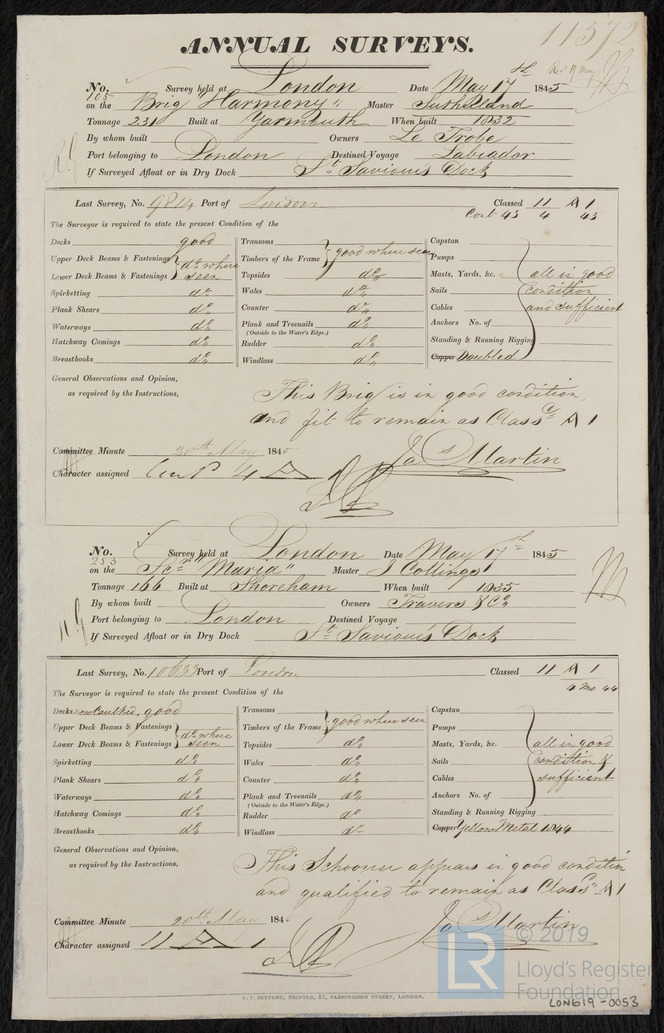 11572
ANNUAL SURVEYS.
No. 105 Survey held at London Date May 17th 1845
on the Brig "Harmony" Master Sutherland
Tonnage 231 Built at Yarmouth When built 1832
By whom built Owners Le Trobe
Port belonging to London Destined Voyage Labrador
If Surveyed Afloat or in Dry Dock St Saviours Dock
Last Survey, No. 9814 Port of London Classed 11 A 1
Cont 43 4 43
The Surveyor is required to state the present Condition of the
Decks good Transoms Capstan
Upper Deck Beams & Fastenings do where Timbers of the Frame good where seen Pumps
Lower Deck Beams & Fastenings seen Topsides do Masts, Yards, &c. all in good
Spirketting do Wales do Sails condition
Plank Shears do Counter do Cables and sufficient
Waterways do Plank and Treenails do Anchors No. of
(Outside to the Water's Edge.)
Hatchway Comings do Rudder do Standing & Running Rigging
Breasthooks do Windlass do Copper Doubled
General Observations and Opinion, This Brig is in good condition
as required by the Instructions, and fit to remain as Class A 1
Committee Minute 20th May 1845 Jas Martin
Character assigned Cont 1/4 A
No. 253 Survey held at London Date May 17th 1845
on the Scr "Maria" Master J Collings
Tonnage 166 Built at Shoreham When built 1835
By whom built Owners Travers & Co
Port belonging to London Destined Voyage
If Surveyed Afloat or in Dry Dock St Saviours Dock
Last Survey, No. 10633 Port of London Classed 11 A 1
4 Mo 44
The Surveyor is required to state the present Condition of the
Decks now Caulked, good Transoms Capstan
Upper Deck Beams & Fastenings do where Timbers of the Frame good where seen Pumps
Lower Deck Beams & Fastenings seen Topsides do Masts, Yards, &c. all in good
Spirketting do Wales do Sails condition &
Plank Shears do Counter do Cables sufficient
Waterways do Plank and Treenails do Anchors No. of
(Outside to the Water's Edge.)
Hatchway Comings do Rudder do Standing & Running Rigging
Breasthooks do Windlass do Copper Yellow Metal 1844
General Observations and Opinion, This Schooner appears in good condition
as required by the Instructions, and qualified to remain as Class A 1
Committee Minute 20th May 184 Jas Martin
Character assigned 11 A 1
© 2019
LR Lloyd's Register
Foundation
C. F. SEYFANG, PRINTER, 57, FARRINGDON STREET, LONDON.
LON619-0053